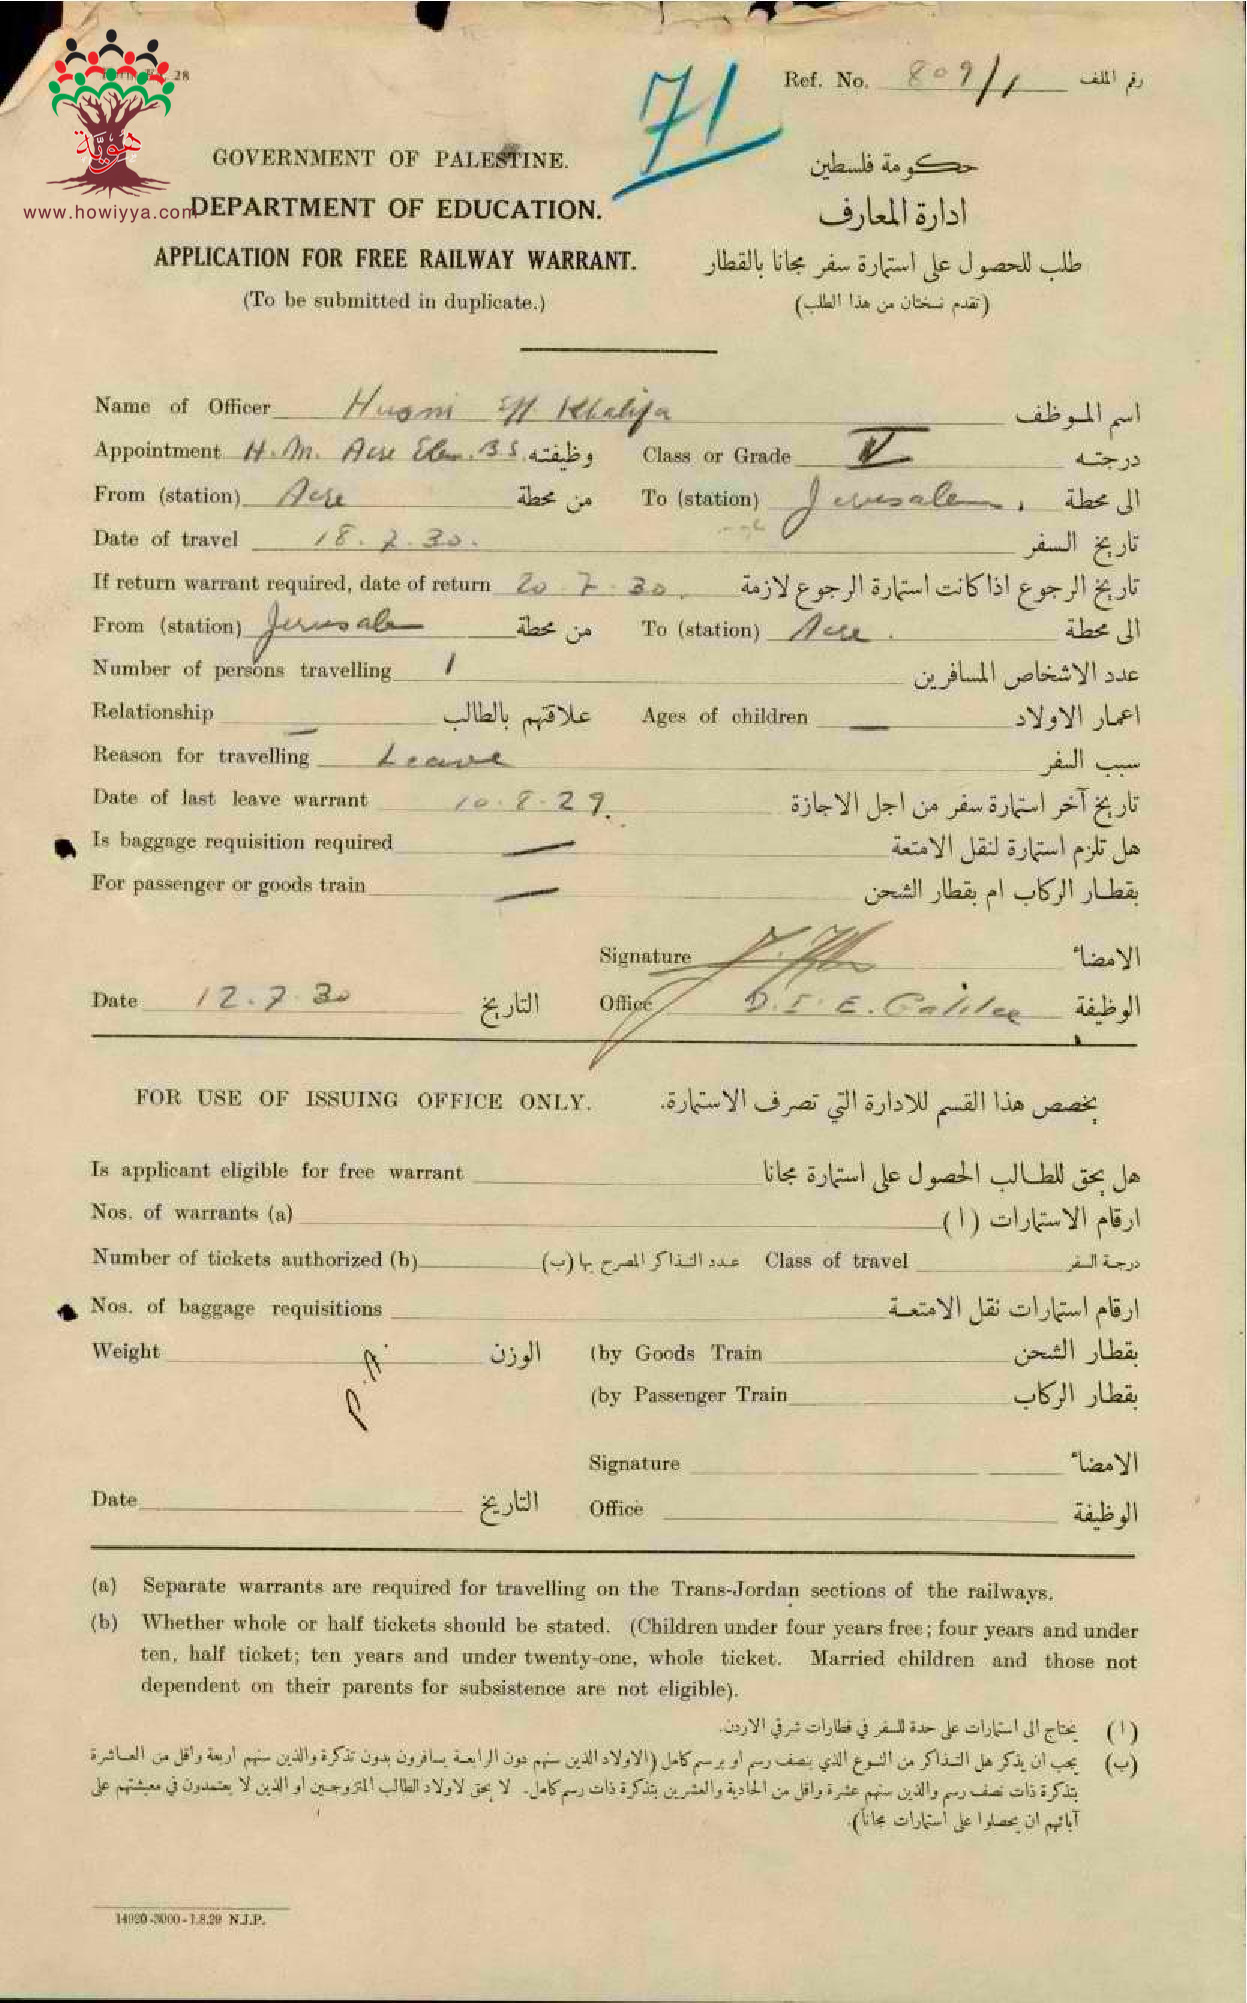 28
71
Ref. No. 809/1 رقم الملف
هوية
www.howiyya.com
GOVERNMENT OF PALESTINE. حكومة فلسطين
DEPARTMENT OF EDUCATION. ادارة المعارف
APPLICATION FOR FREE RAILWAY WARRANT. طلب للحصول على استمارة سفر مجانا بالقطار
(To be submitted in duplicate.) (تقدم نسختان من هذا الطلب)
Name of Officer Husni Eff Khalifa اسم الموظف
Appointment H.M. Acre Elem. B.S. وظيفته Class or Grade V درجته
From (station) Acre من محطة To (station) Jerusalem الى محطة
Date of travel 18.7.30. تاريخ السفر
If return warrant required, date of return 20.7.30. تاريخ الرجوع اذا كانت استمارة الرجوع لازمة
From (station) Jerusalem من محطة To (station) Acre. الى محطة
Number of persons travelling 1 عدد الاشخاص المسافرين
Relationship — علاقتهم بالطالب Ages of children — اعمار الاولاد
Reason for travelling Leave سبب السفر
Date of last leave warrant 10.8.29. تاريخ آخر استمارة سفر من اجل الاجازة
Is baggage requisition required — هل تلزم استمارة لنقل الامتعة
For passenger or goods train — بقطار الركاب ام بقطار الشحن
Signature الامضاء
Date 12.7.30 التاريخ Office D.I.E. Galilee الوظيفة
FOR USE OF ISSUING OFFICE ONLY. يخصص هذا القسم للادارة التي تصرف الاستمارة.
Is applicant eligible for free warrant هل يحق للطالب الحصول على استمارة مجانا
Nos. of warrants (a) ارقام الاستمارات (ا)
Number of tickets authorized (b) عدد التذاكر المصرح بها (ب) Class of travel درجة السفر
Nos. of baggage requisitions ارقام استمارات نقل الامتعة
Weight الوزن (by Goods Train بقطار الشحن
P.A.
(by Passenger Train بقطار الركاب
Signature الامضاء
Date التاريخ Office الوظيفة
(a) Separate warrants are required for travelling on the Trans-Jordan sections of the railways.
(b) Whether whole or half tickets should be stated. (Children under four years free; four years and under
ten, half ticket; ten years and under twenty-one, whole ticket. Married children and those not
dependent on their parents for subsistence are not eligible).
(ا) يحتاج الى استمارات على حدة للسفر في قطارات شرقي الاردن.
(ب) يجب ان يذكر هل التذاكر من النوع الذي بنصف رسم او برسم كامل (الاولاد الذين سنهم دون الرابعة يسافرون بدون تذكرة والذين سنهم اربعة واقل من العاشرة
بتذكرة ذات نصف رسم والذين سنهم عشرة واقل من الحادية والعشرين بتذكرة ذات رسم كامل. لا يحق لاولاد الطالب المتزوجين او الذين لا يعتمدون في معيشتهم على
آبائهم ان يحصلوا على استمارات مجاناً).
14920-3000-1.8.29 N.J.P.